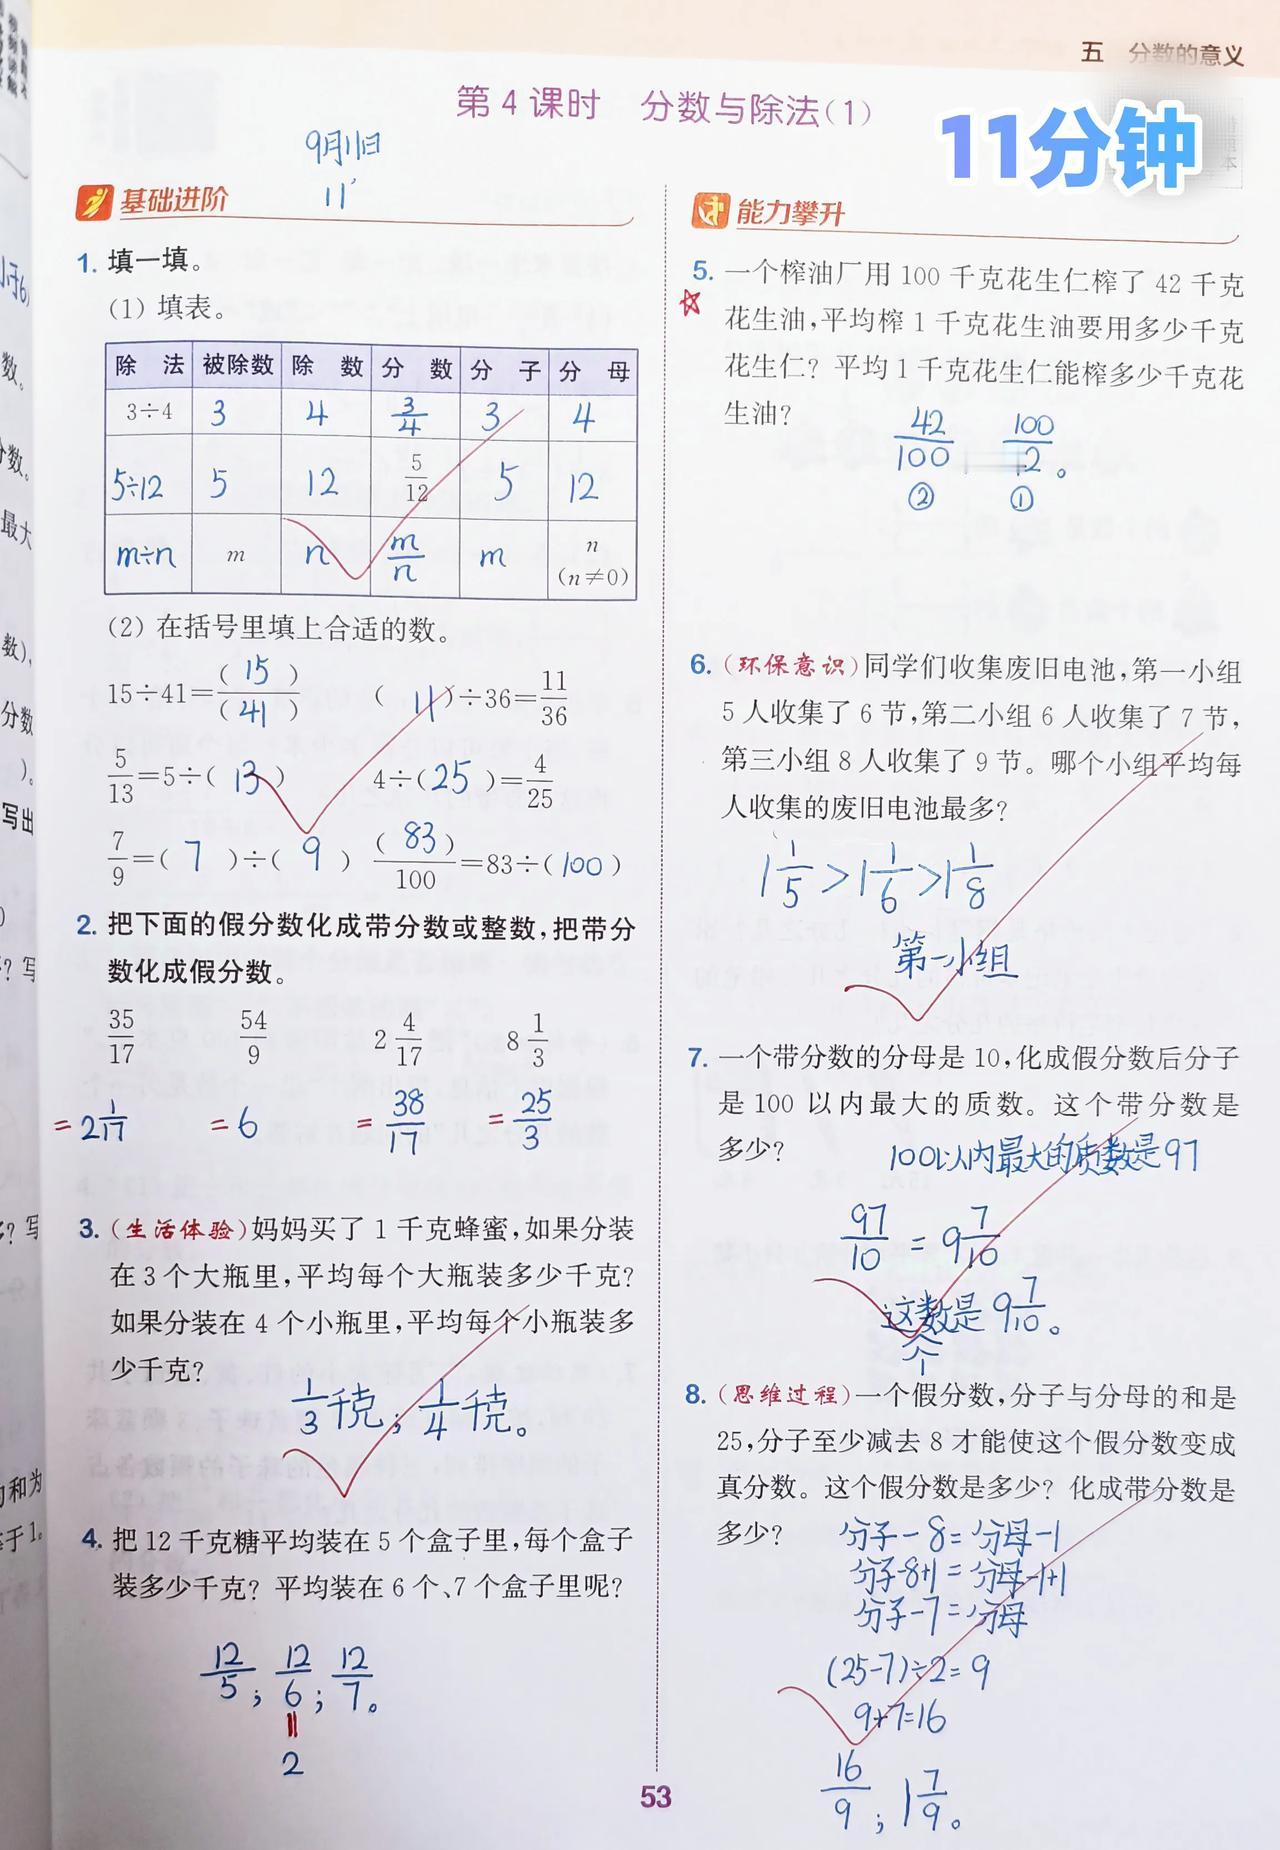 五 分数的意义
第4课时 分数与除法(1)
11分钟
9月11日
11'
基础进阶
1. 填一填。
(1) 填表。
除 法 被除数 除 数 分 数 分 子 分 母
3÷4 3 4 3/4 3 4
5÷12 5 12 5/12 5 12
m÷n m n m/n m n (n≠0)
(2) 在括号里填上合适的数。
15÷41=(15)/(41) (11)÷36=11/36
5/13=5÷(13) 4÷(25)=4/25
7/9=(7)÷(9) (83)/100=83÷(100)
2. 把下面的假分数化成带分数或整数,把带分
数化成假分数。
35/17 54/9 2 4/17 8 1/3
=2 1/17 =6 =38/17 =25/3
3. (生活体验)妈妈买了1千克蜂蜜,如果分装
在3个大瓶里,平均每个大瓶装多少千克?
如果分装在4个小瓶里,平均每个小瓶装多
少千克?
1/3千克;1/4千克。
4. 把12千克糖平均装在5个盒子里,每个盒子
装多少千克? 平均装在6个、7个盒子里呢?
12/5;12/6;12/7。
=
2
能力攀升
5. 一个榨油厂用100千克花生仁榨了42千克
花生油,平均榨1千克花生油要用多少千克
花生仁? 平均1千克花生仁能榨多少千克花
生油?
42/100 100/2。
② ①
6. (环保意识)同学们收集废旧电池,第一小组
5人收集了6节,第二小组6人收集了7节,
第三小组8人收集了9节。哪个小组平均每
人收集的废旧电池最多?
1 1/5>1 1/6>1 1/8
第一小组
7. 一个带分数的分母是10,化成假分数后分子
是100以内最大的质数。这个带分数是
多少?
100以内最大的质数是97
97/10=9 7/10
这个数是9 7/10。
8. (思维过程)一个假分数,分子与分母的和是
25,分子至少减去8才能使这个假分数变成
真分数。这个假分数是多少? 化成带分数是
多少?
分子-8=分母-1
分子-8+1=分母-1+1
分子-7=分母
(25-7)÷2=9
9+7=16
16/9;1 7/9。
53